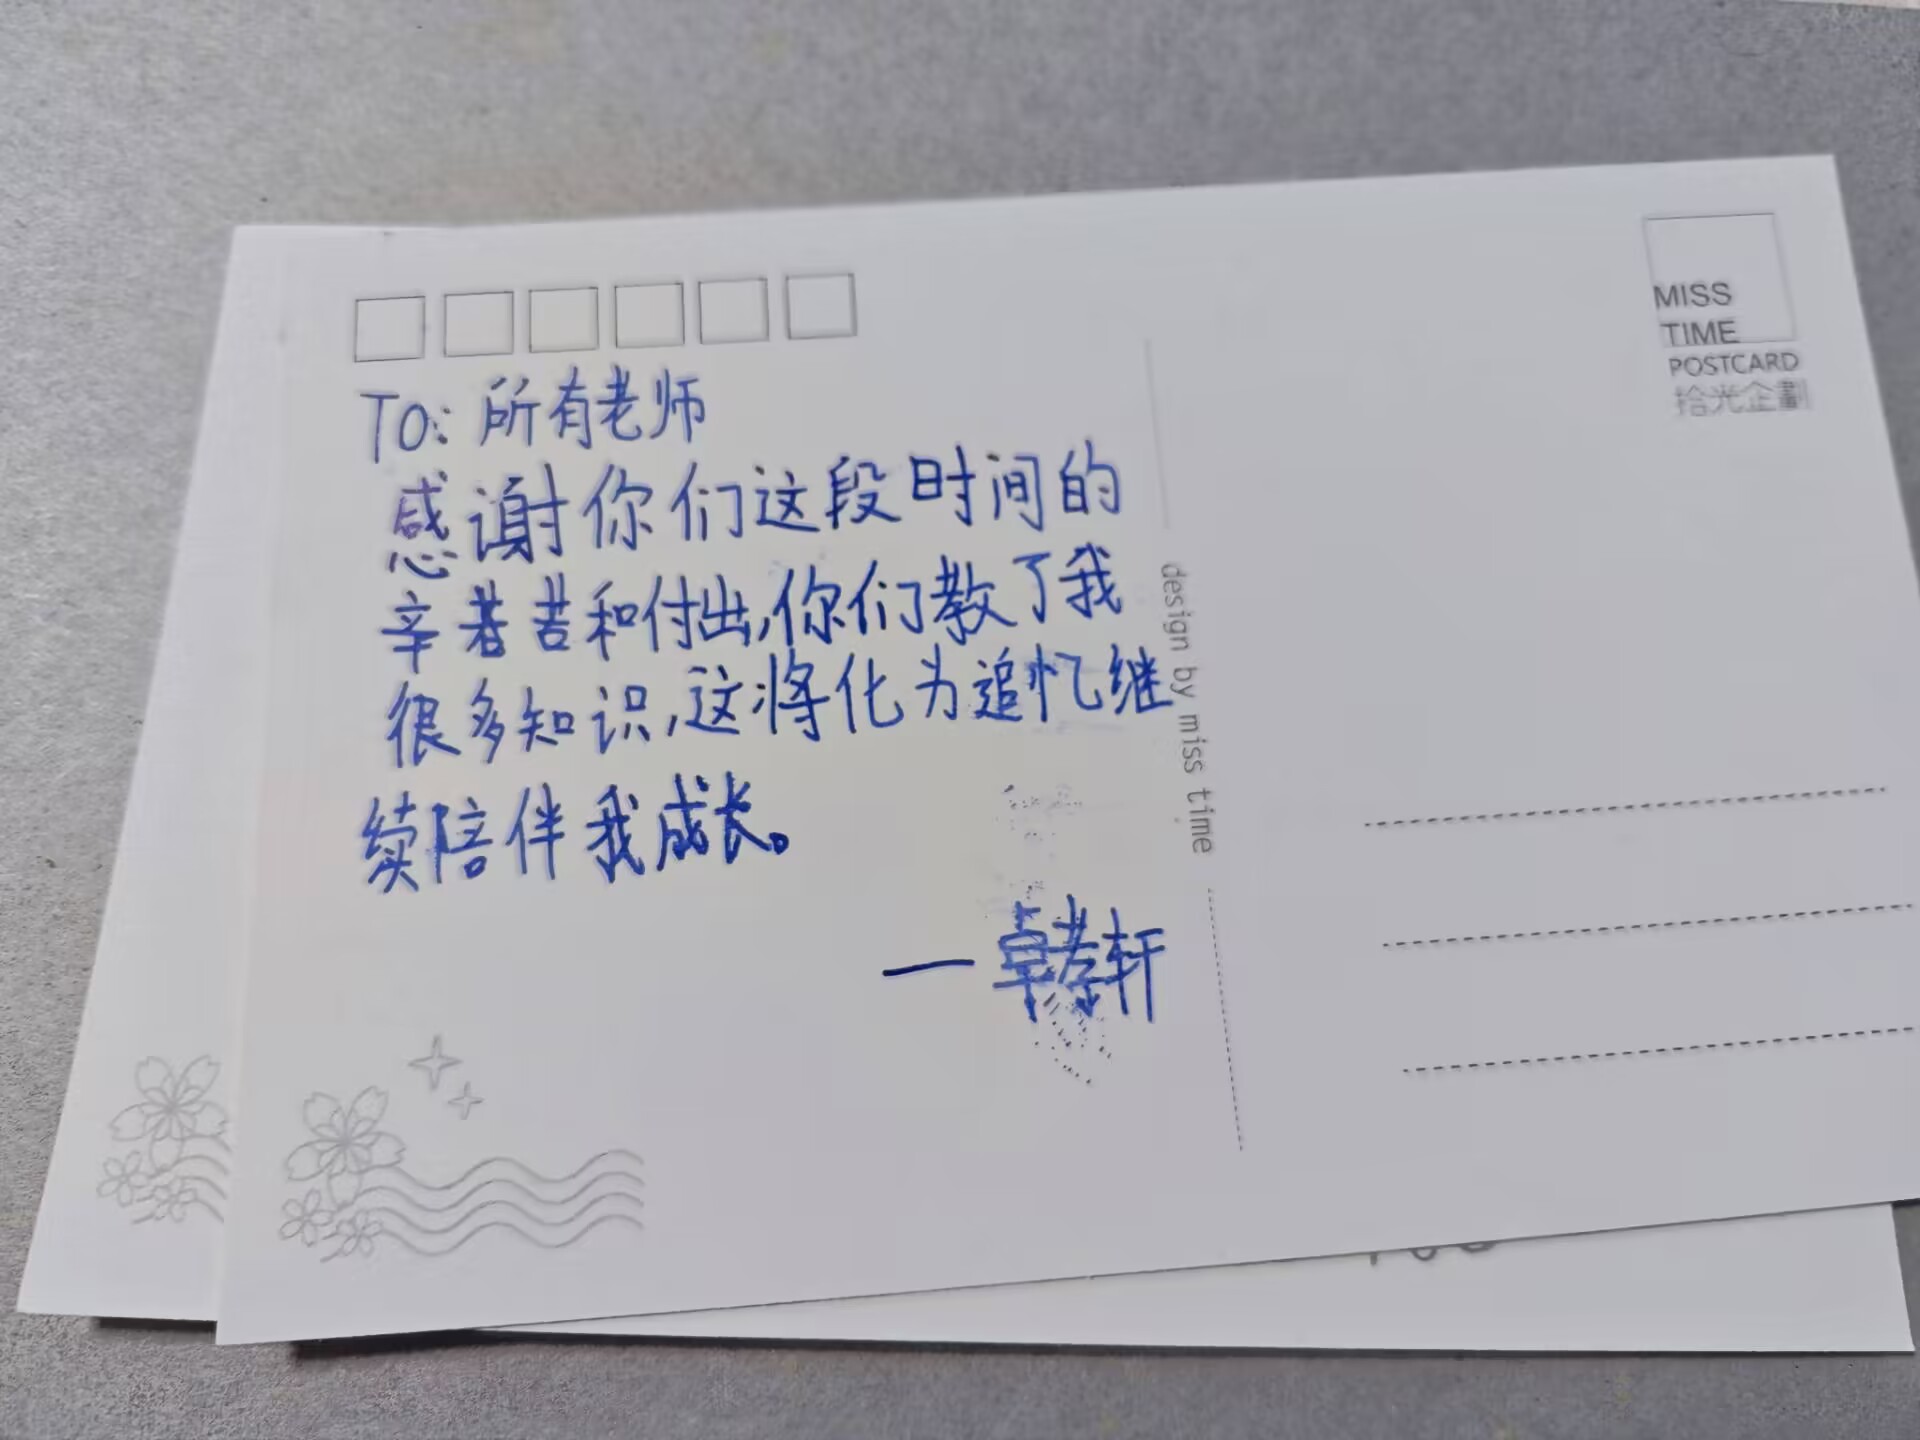 TO: 所有老师
感谢你们这段时间的
辛苦和付出,你们教了我
很多知识,这将化为追忆继
续陪伴我成长。
—卓孝轩
design by miss time
MISS
TIME
POSTCARD
拾光企劃